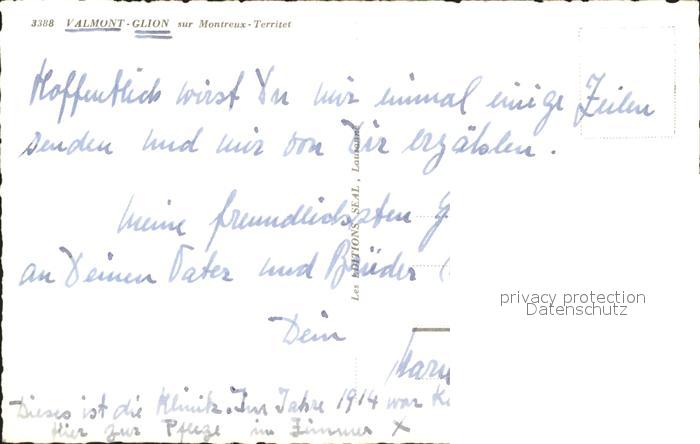 3388 VALMONT-GLION sur Montreux-Territet
Hoffentlich wirst Du mir einmal einige Zeilen
senden und mir von Dir erzählen.
Meine freundlichsten G
an Deinen Vater und Brüder
Dein
Les EDITIONS SEAL, Lausanne
privacy protection
Datenschutz
Dieses ist die Klinik. Im Jahre 1914 war
Hier zur Pflege im Zimmer X